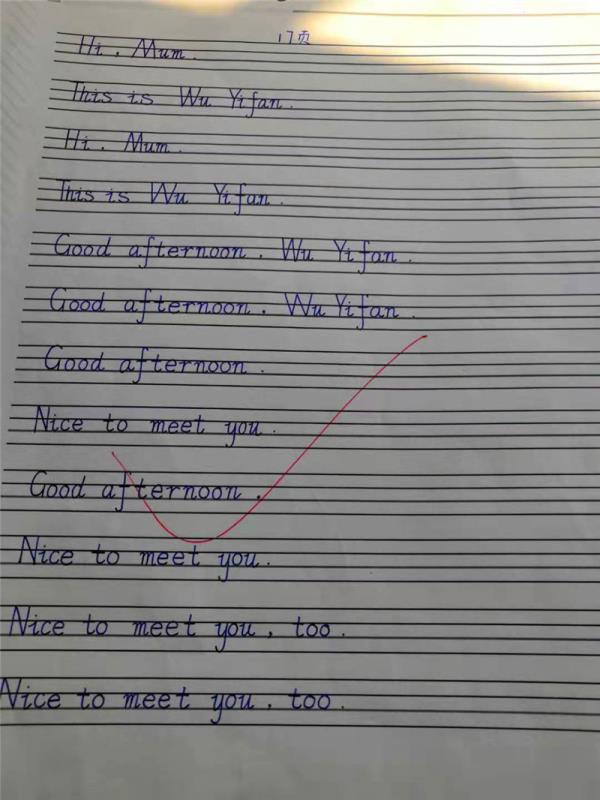 17页
Hi, Mum.
This is Wu Yifan.
Hi, Mum.
This is Wu Yifan.
Good afternoon, Wu Yifan.
Good afternoon, Wu Yifan.
Good afternoon.
Nice to meet you.
Good afternoon.
Nice to meet you.
Nice to meet you, too.
Nice to meet you, too.